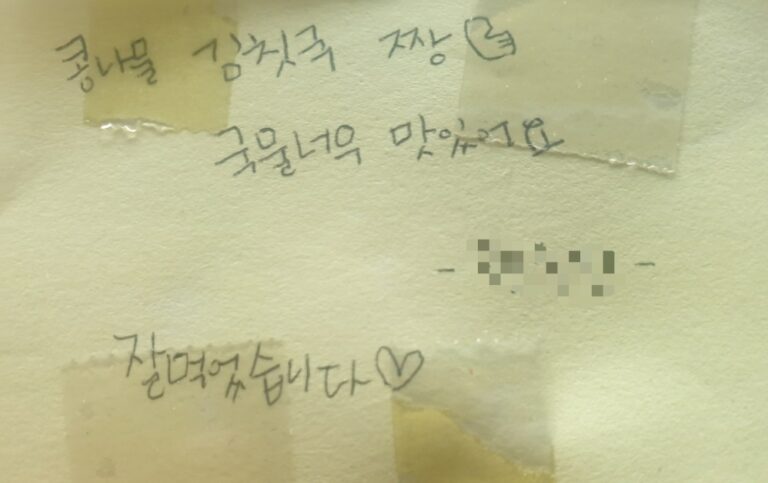 콩나물 김칫국 짱
국물너무 맛있어요
잘먹었습니다♡